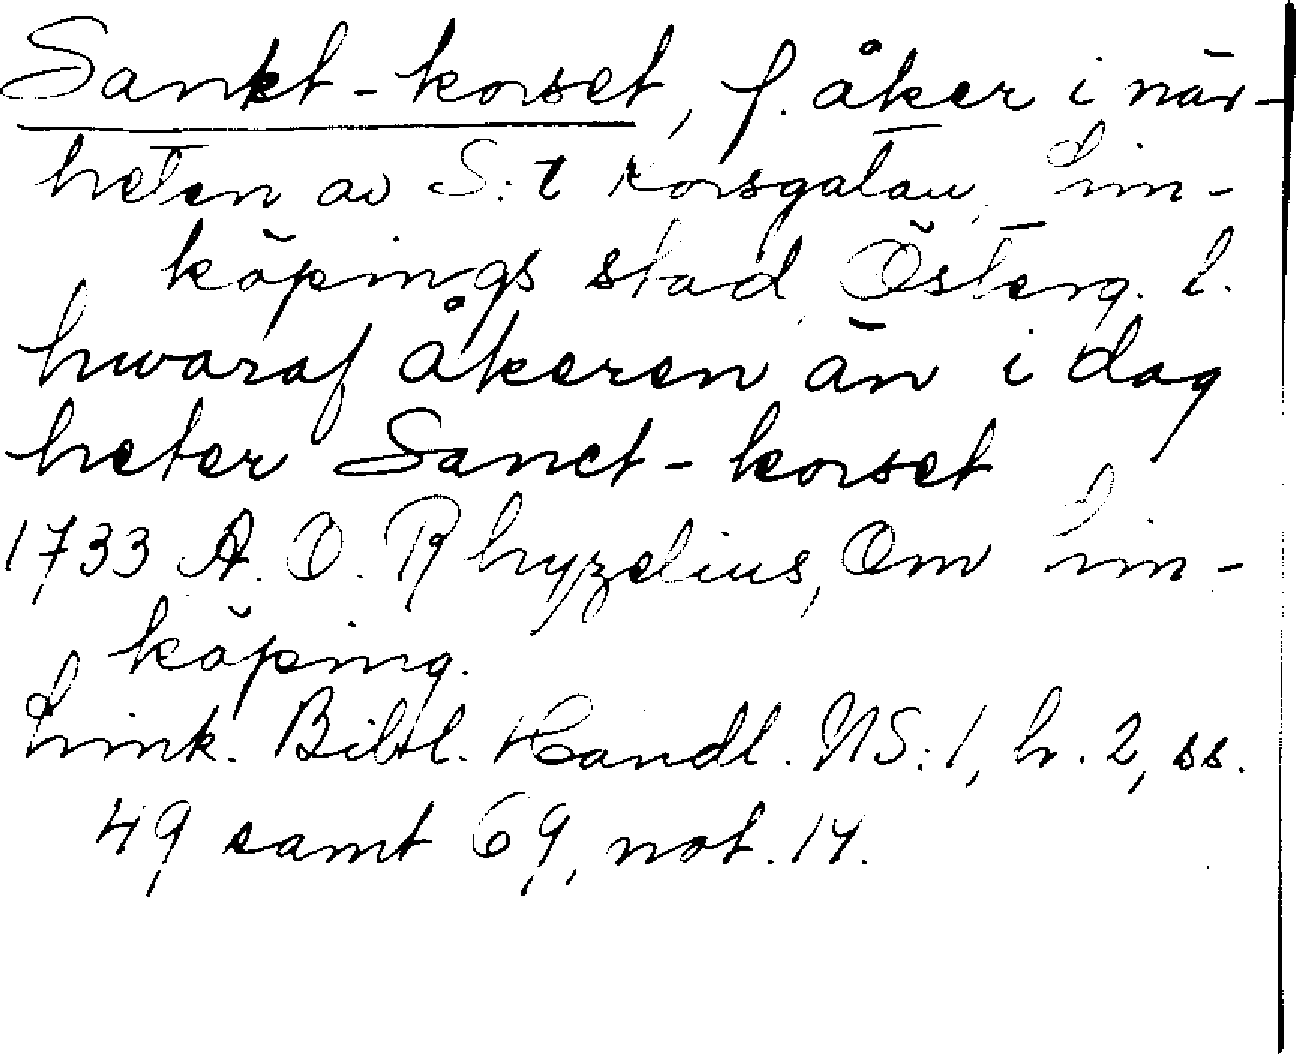 Sankt-korset, f. åker i när-
heten av S:t Korsgatan, Lin-
köpings stad, Österg. l.
hwaraf åkeren än i dag
heter Sanct-korset
1733 A. O. Rhyzelius, Om Lin-
köping.
Link. Bibl. Handl. NS:1, h. 2, ss.
49 samt 69, not. 14.